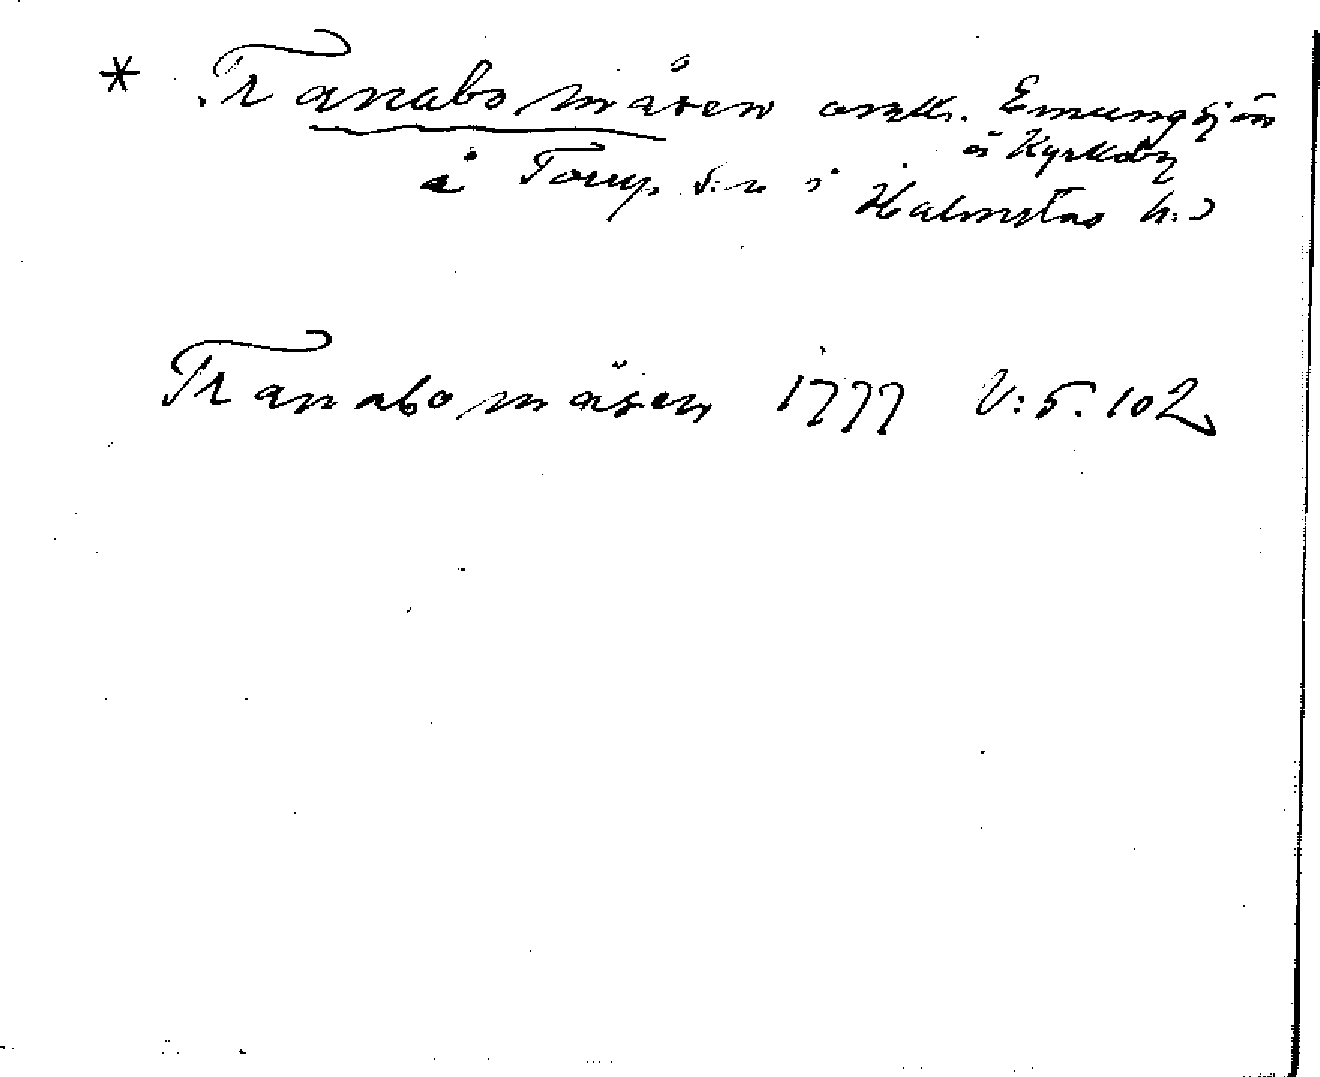 * Tranabo måsen omkr. Emungsjön
ö Kyrkoby
å Torup s:n i Halmstas h:d
Tranabo mäsen 1777 V:5.102